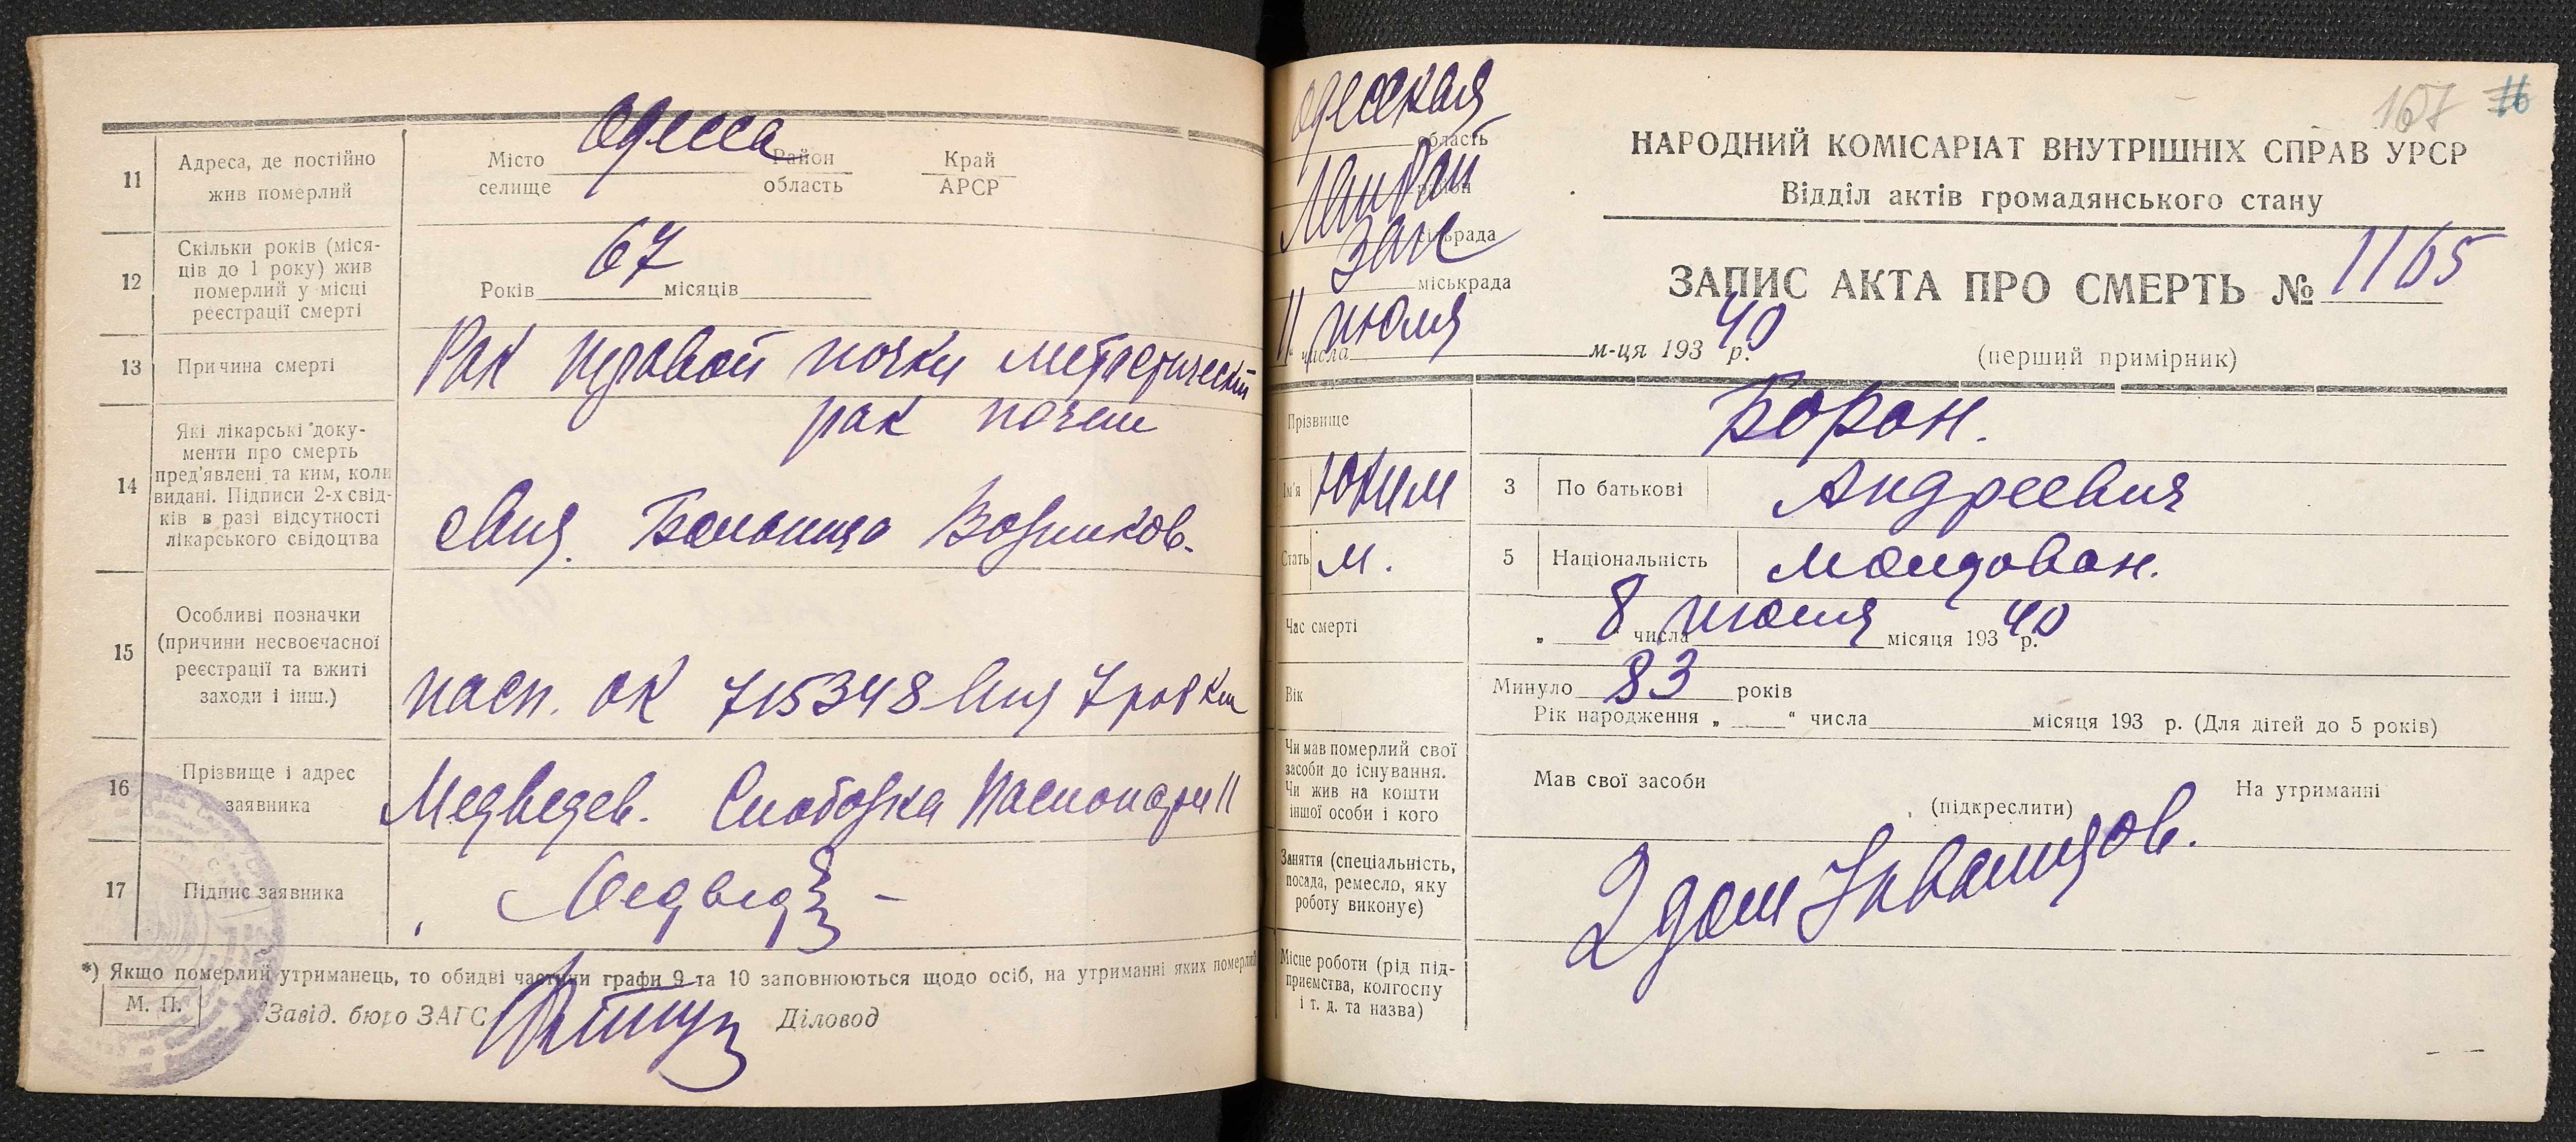 11
Адреса, де постійно
жив померлий
Місто
селище
Одесса
Район
область
Край
АРСР
12
Скільки років (міся-
ців до 1 року) жив
померлий у місці
реєстрації смерті
Років 67 місяців
13
Причина смерті
Рак правой почки
рак
14
Які лікарські доку-
менти про смерть
пред'явлені та ким, коли
видані. Підписи 2-х свід-
ків в разі відсутності
лікарського свідоцтва
15
Особливі позначки
(причини несвоєчасної
реєстрації та вжиті
заходи і інш.)
пасп. ОК 715348
16
Прізвище і адрес
заявника
Медведев. Слободка
17
Підпис заявника
*) Якщо померлий утриманець, то обидві частини графи 9 та 10 заповнюються щодо осіб, на утриманні яких померлий
М. П.
Завід. бюро ЗАГС
Діловод
167
Одесская
область
район
сільрада
Загс
міськрада
11 июля
числа м-ця 193 40 р.
НАРОДНИЙ КОМІСАРІАТ ВНУТРІШНІХ СПРАВ УРСР
Відділ актів громадянського стану
ЗАПИС АКТА ПРО СМЕРТЬ № 1165
(перший примірник)
Прізвище
Боран.
Ім'я
3
По батькові
Андреевич
Стать
м.
5
Національність
молдован.
Час смерті
„ 8 числа июля місяця 193 40 р.
Вік
Минуло 83 років
Рік народження „ “ числа місяця 193 р. (Для дітей до 5 років)
Чи мав померлий свої
засоби до існування.
Чи жив на кошти
іншої особи і кого
Мав свої засоби
(підкреслити)
На утриманні
Заняття (спеціальність,
посада, ремесло, яку
роботу виконує)
2 дом Инвалидов.
Місце роботи (рід під-
приємства, колгоспу
і т. д. та назва)